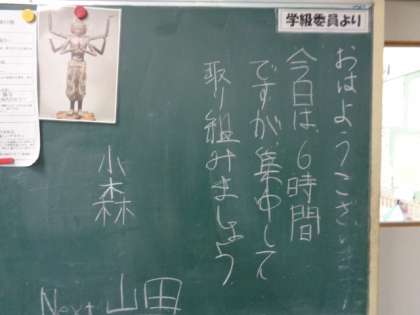 学級委員より
おはようございます
今日は、6時間
ですが、集中して
取り組みましょう
小森
Next 山田